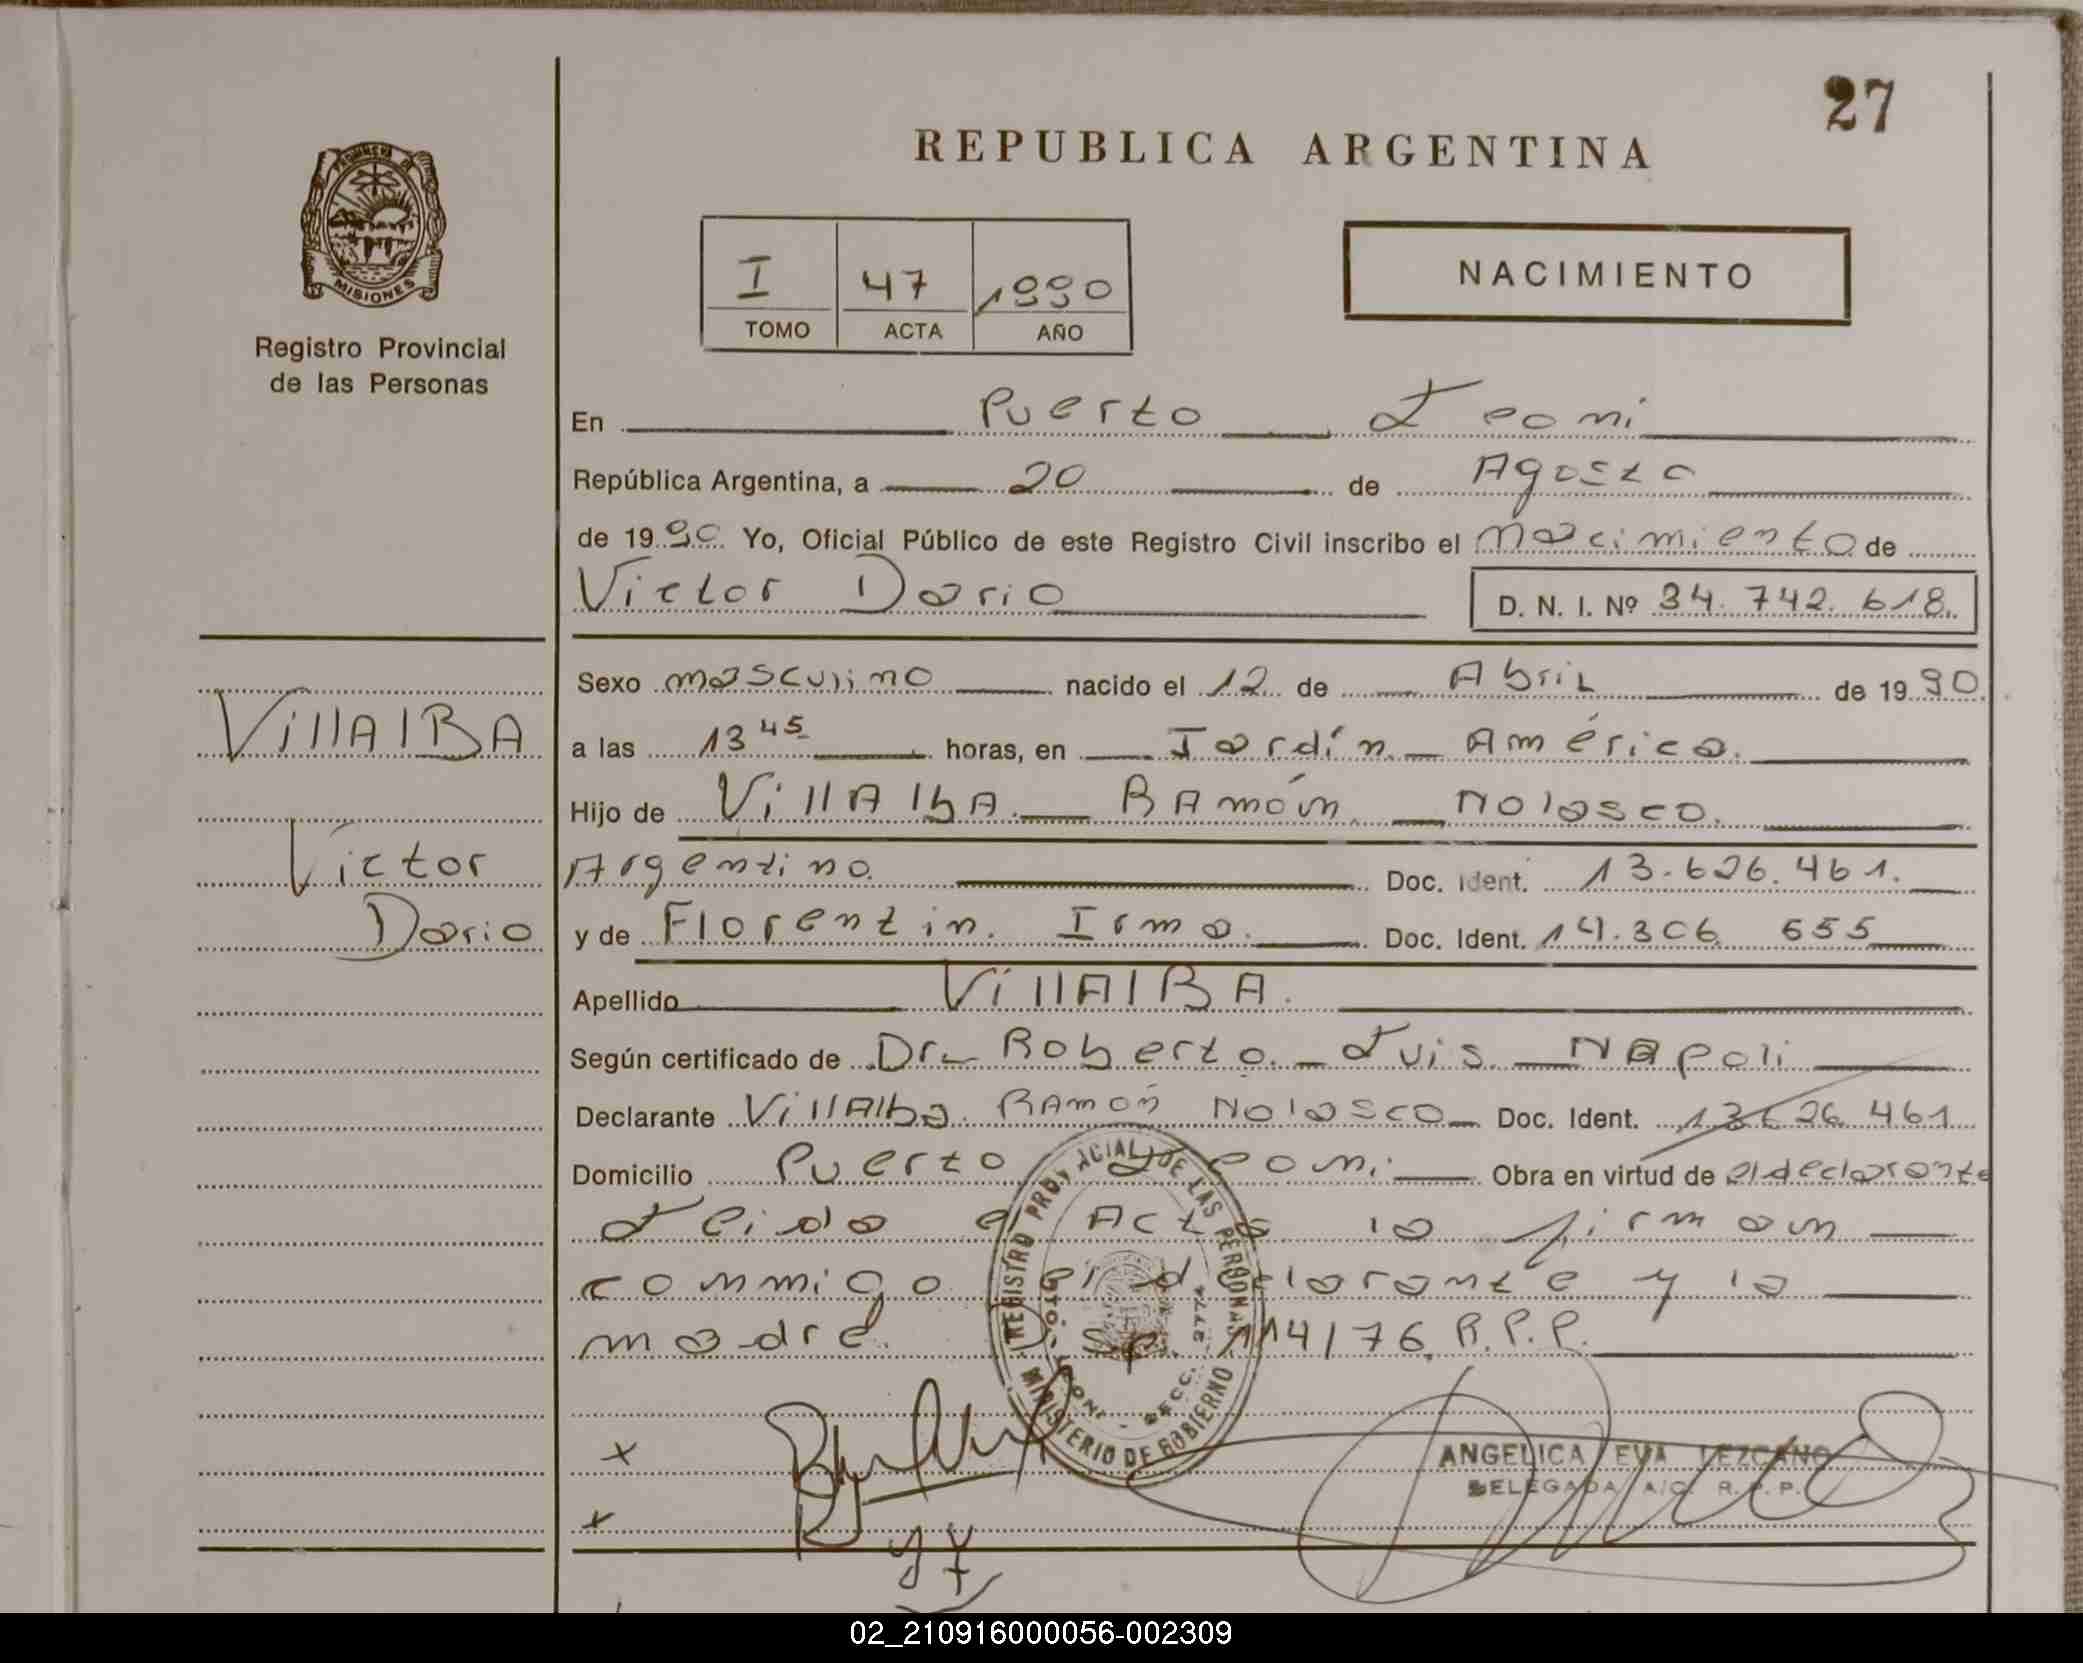 27
REPUBLICA ARGENTINA
PROVINCIA DE
MISIONES
Registro Provincial
de las Personas
I 47 1990
TOMO ACTA AÑO
NACIMIENTO
En Puerto Leoni
República Argentina, a 20 de Agosto
de 1990 Yo, Oficial Público de este Registro Civil inscribo el nacimiento de
Victor Dario D. N. I. Nº 34.742.618.
Sexo masculino nacido el 12 de Abril de 1990.
VillAlBA
a las 13 45 horas, en Jardín América.
Hijo de VillAlbA RAmón Nolasco.
Victor
Argentino. Doc. Ident. 13.626.461.
Dario
y de Florentin. Irma. Doc. Ident. 14.306 655
Apellido VillAlBA.
Según certificado de Dr Roberto. Luis. NApoli
Declarante VillAlba. RAmón Nolasco Doc. Ident. 13626.461
Domicilio Puerto Leoni Obra en virtud de el declarante
Leida el Acta la firman
conmigo el declarante y la
madre. Disp. 114/76 R.P.P.
REGISTRO PROVINCIAL DE LAS PERSONAS
MINISTERIO DE GOBIERNO
SECC. 2774
x
ANGELICA EVA LEZCANO
DELEGADA A/C. R.P.P.
x
02_210916000056-002309